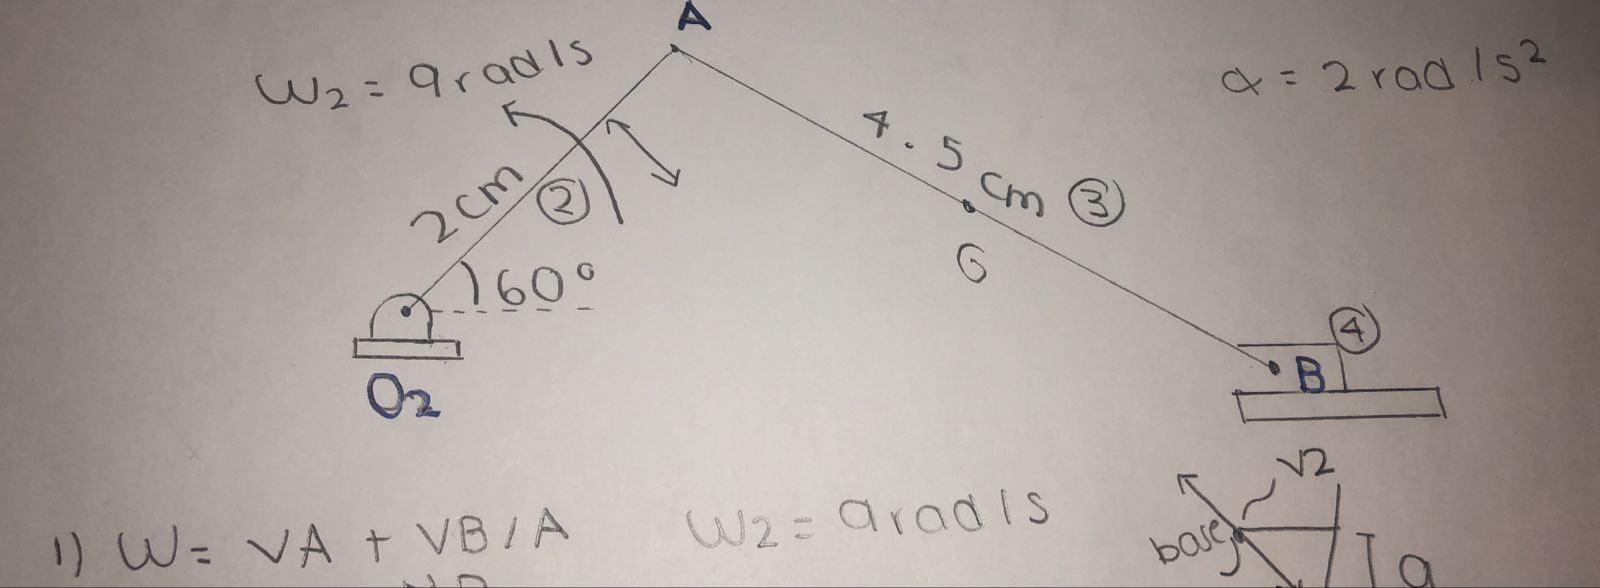 A
W2 = 9 rad/s
α = 2 rad/s²
4.5 cm ③
2 cm ②
G
60°
④
B
O2
√2
1) W = VA + VB/A
W2 = 9 rad/s
base